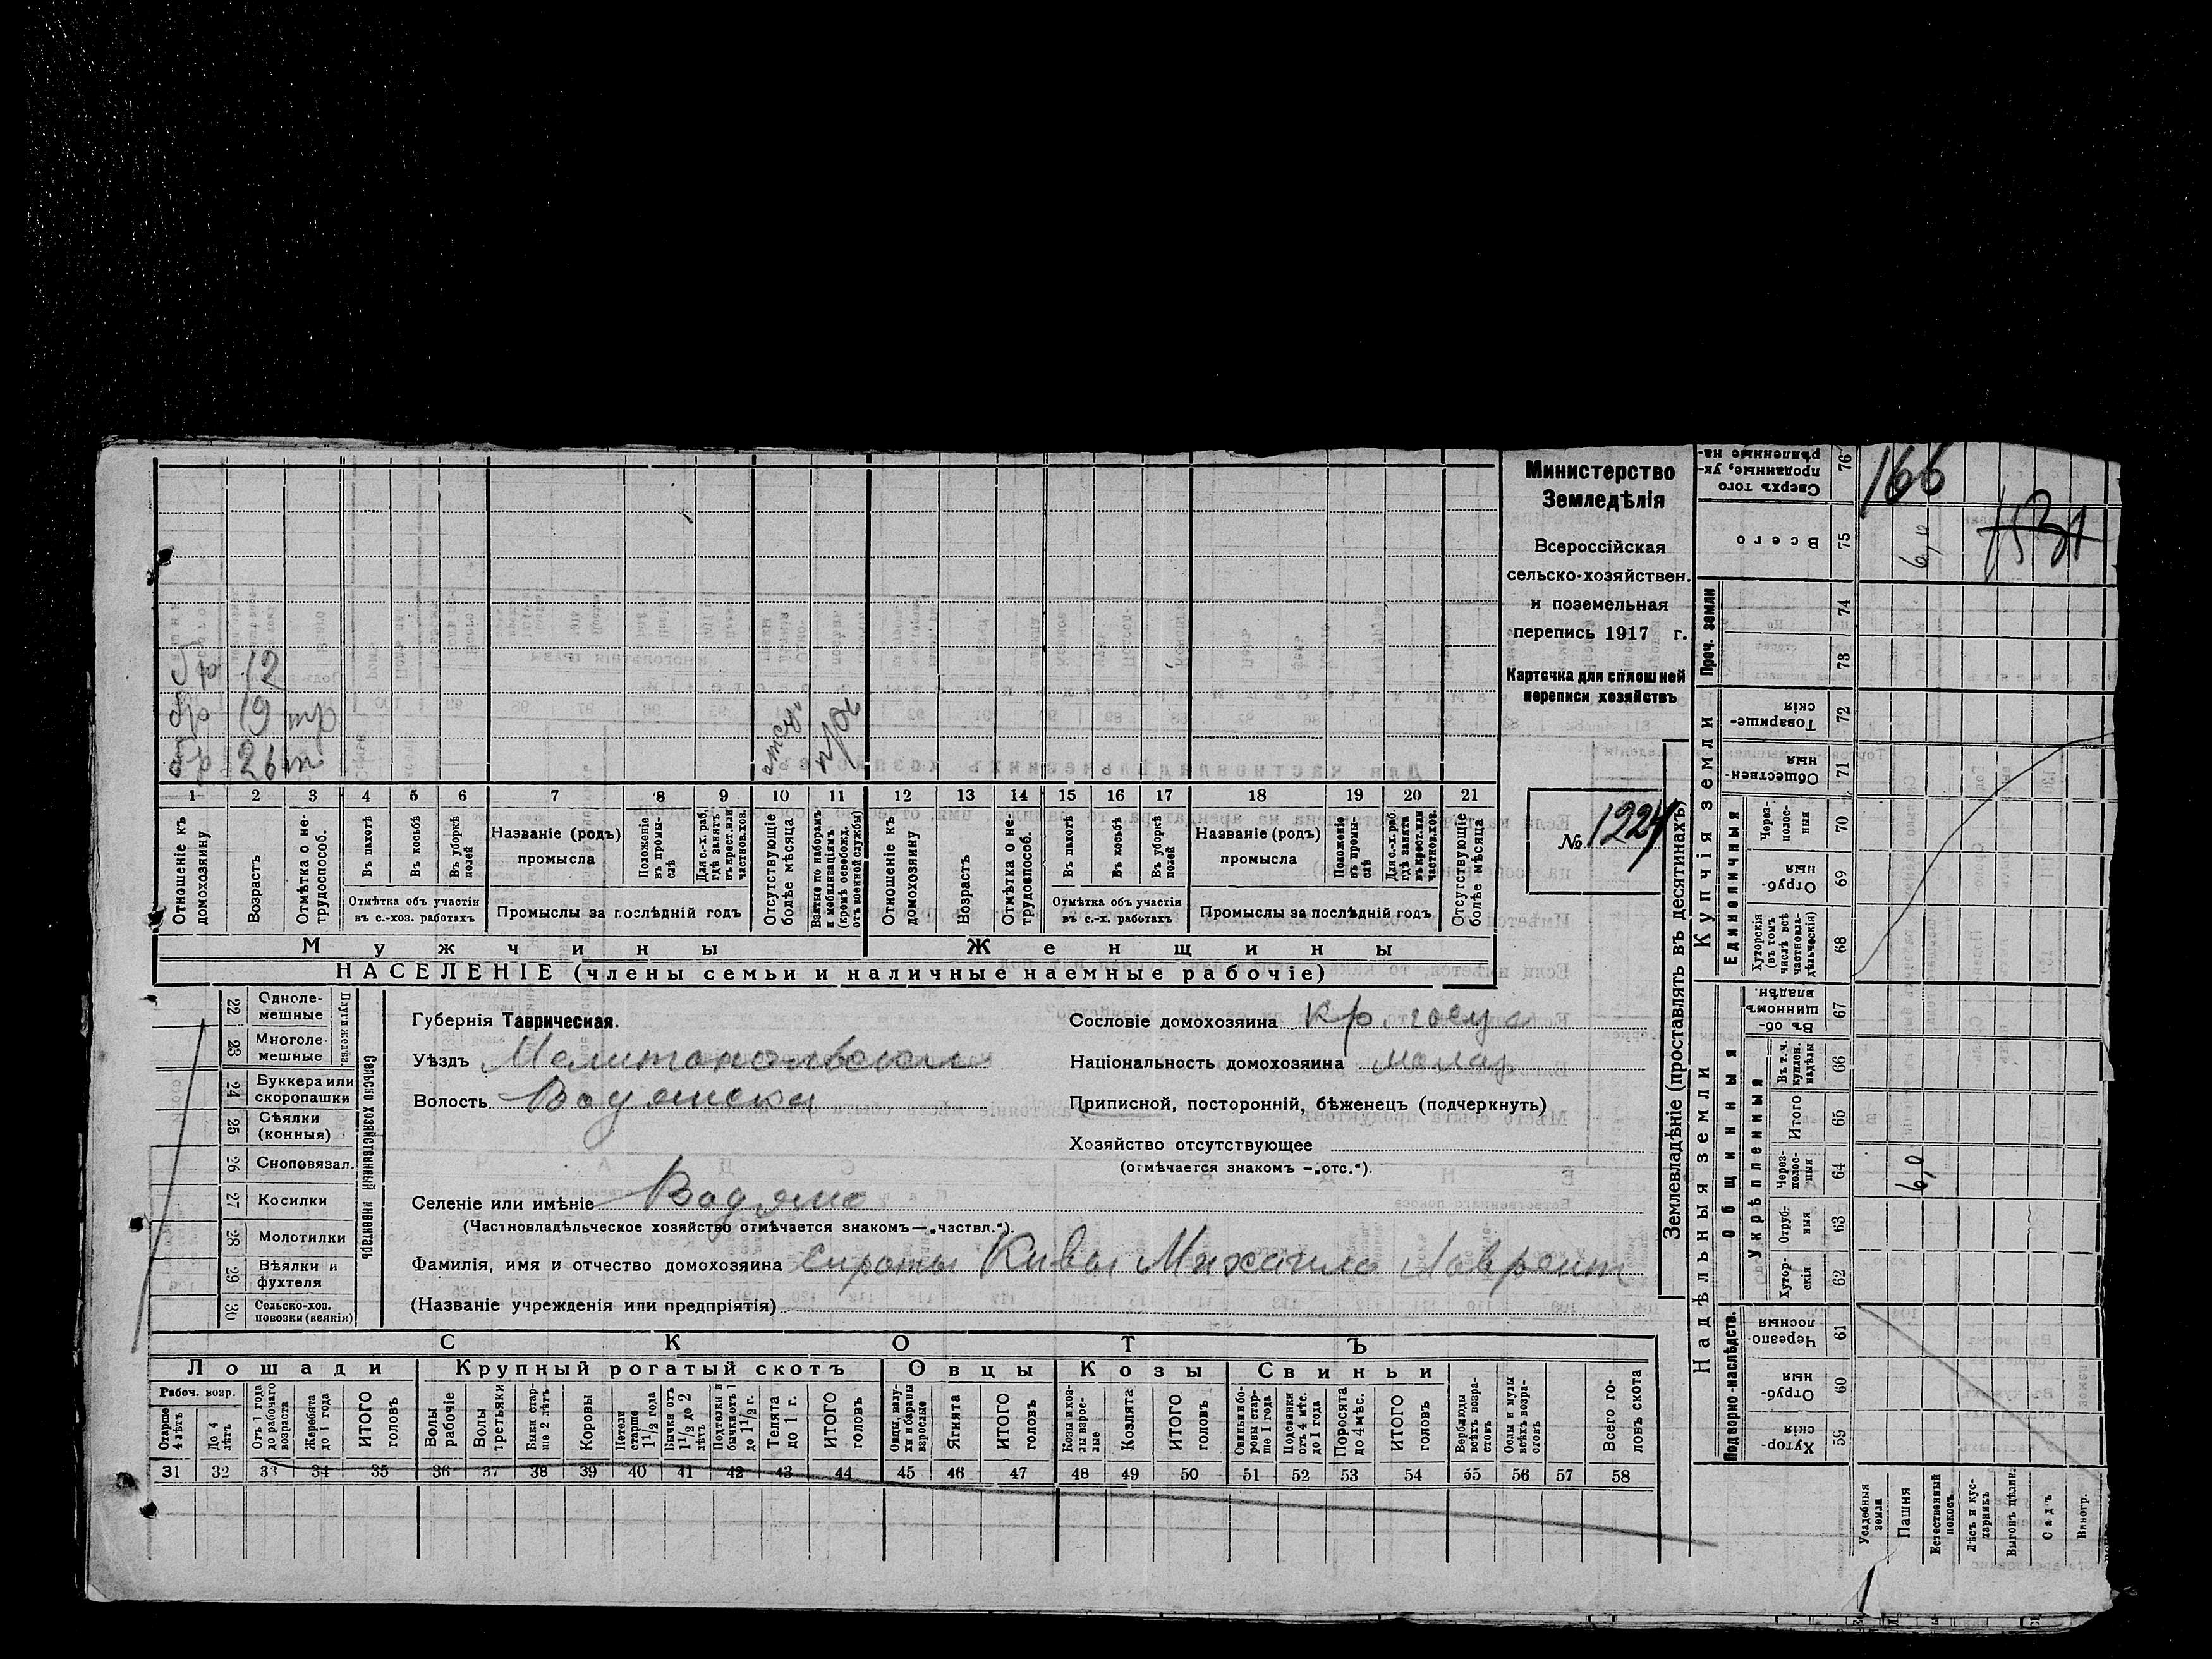 Министерство
Земледѣлія
Всероссійская
сельско-хозяйствен.
и поземельная
перепись 1917 г.
Карточка для сплошней
переписи хозяйствъ
№ 1224
166
бр 12
бр 19
бр 26
1 2 3 4 5 6 7 8 9 10 11 12 13 14 15 16 17 18 19 20 21
Отношеніе къ домохозяину
Возрастъ
Отмѣтка о не-трудоспособ.
Въ пахотѣ
Въ косьбѣ
Въ уборкѣ полей
Отмѣтка объ участіи
въ с.-хоз. работахъ
Названіе (родъ)
промысла
Положеніе въ промы-слѣ
Для с.-х. раб. гдѣ занятъ въ крест. или частнов. хоз.
Промыслы за послѣдній годъ
Отсутствующіе болѣе мѣсяца
Взятые по наборамъ и мобилизаціямъ (кромѣ освобожд. отъ военной службы)
Отношеніе къ домохозяину
Возрастъ
Отмѣтка о не-трудоспособ.
Въ пахотѣ
Въ косьбѣ
Въ уборкѣ полей
Отмѣтка объ участіи
въ с.-х. работахъ
Названіе (родъ)
промысла
Положеніе въ промы-слѣ
Для с.-х. раб. гдѣ занята въ крест. или частнов. хоз.
Промыслы за послѣдній годъ
Отсутствующіе болѣе мѣсяца
Мужчины Женщины
НАСЕЛЕНІЕ (члены семьи и наличные наемные рабочіе)
22 Одноле-мешные
23 Многоле-мешные
24 Буккера или скоропашки
25 Сѣялки (конныя)
26 Сноповязал.
27 Косилки
28 Молотилки
29 Вѣялки и фухтеля
30 Сельско-хоз. повозки (всякія)
Сельско хозяйственный инвентарь
Губернія Таврическая.
Уѣздъ Мелитопольскій
Волость Водянска
Селеніе или имѣніе Водяно
(Частновладѣльческое хозяйство отмѣчается знакомъ—„частвл.“).
Фамилія, имя и отчество домохозяина Сироты Кивы Михаила Лаврент
(Названіе учрежденія или предпріятія)
Сословіе домохозяина кр.
Національность домохозяина малор
Приписной, посторонній, бѣженецъ (подчеркнуть)
Хозяйство отсутствующее
(отмѣчается знакомъ —„отс.“).
СКОТЪ
Лошади Крупный рогатый скотъ Овцы Козы Свиньи
Рабоч. возр.
Старше 4 лѣтъ
До 4 лѣтъ
Отъ 1 года до рабочаго возраста
Жеребята до 1 года
ИТОГО головъ
Волы рабочіе
Волы третьяки
Быки стар-ше 2 лѣтъ
Коровы
Нетели старше 1 1/2 года
Бычки отъ 1 1/2 до 2 лѣтъ
Подтелки и бычки отъ 1 до 1 1/2 г.
Телята до 1 г.
ИТОГО головъ
Овцы, валу-хи и бараны взрослые
Ягнята
ИТОГО головъ
Козы и коз-лы взрос-лые
Козлята
ИТОГО головъ
Свиньи и бо-ровы стар-ше 1 года
Подсвинки отъ 4 мѣс. до 1 года
Поросята до 4 мѣс.
ИТОГО головъ
Верблюды всѣхъ возра-стовъ
Ослы и мулы всѣхъ возра-стовъ
Всего го-ловъ скота
31 32 33 34 35 36 37 38 39 40 41 42 43 44 45 46 47 48 49 50 51 52 53 54 55 56 57 58
Землевладѣніе (проставлять въ десятинахъ)
Надѣльныя земли
Купчія земли
Проч. земли
Подворно-наслѣдств.
Общинныя
Укрѣпленныя
Единоличныя
Сверхъ того проданные, ук-рѣпленные на- 76
Всего 75 6,0
74
73
Товарище-скія 72
Обществен-ныя 71
Через-полос-ныя 70
Отруб-ныя 69
Хуторскія (въ томъ числѣ всѣ частновла-дѣльческія) 68
Въ об-щинномъ владѣн. 67
Въ т. ч. куплен. надѣлы 66
Итого 65
Через-полос-ныя 64 6,0
Отруб-ныя 63
Хутор-скія 62
Черезпо-лосныя 61
Отруб-ныя 60
Хутор-скія 59
Усадебныя земли
Пашня
Естественный покосъ
Лѣсъ и кус-тарникъ
Выгонъ цѣлин.
Садъ
Виногр.